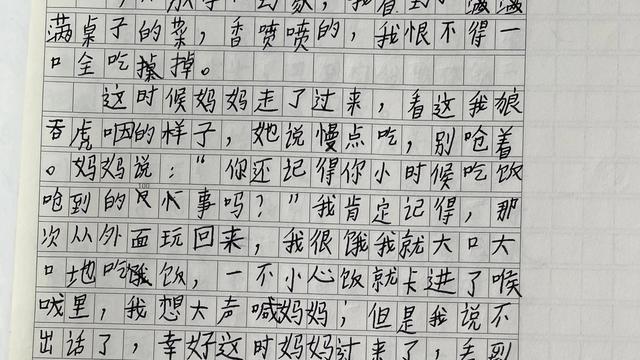 到家，我看到了满满
满桌子的菜，香喷喷的，我恨不得一
口全吃掉。
这时候妈妈走了过来，看这我狼
吞虎咽的样子，她说慢点吃，别呛着
。妈妈说：“你还记得你小时候吃饭
呛到的事吗？”我肯定记得，那
次从外面玩回来，我很饿我就大口大
口地吃饭，一不小心饭就卡进了喉
咙里，我想大声喊妈妈；但是我说不
出话了，幸好这时妈妈过来了，看到